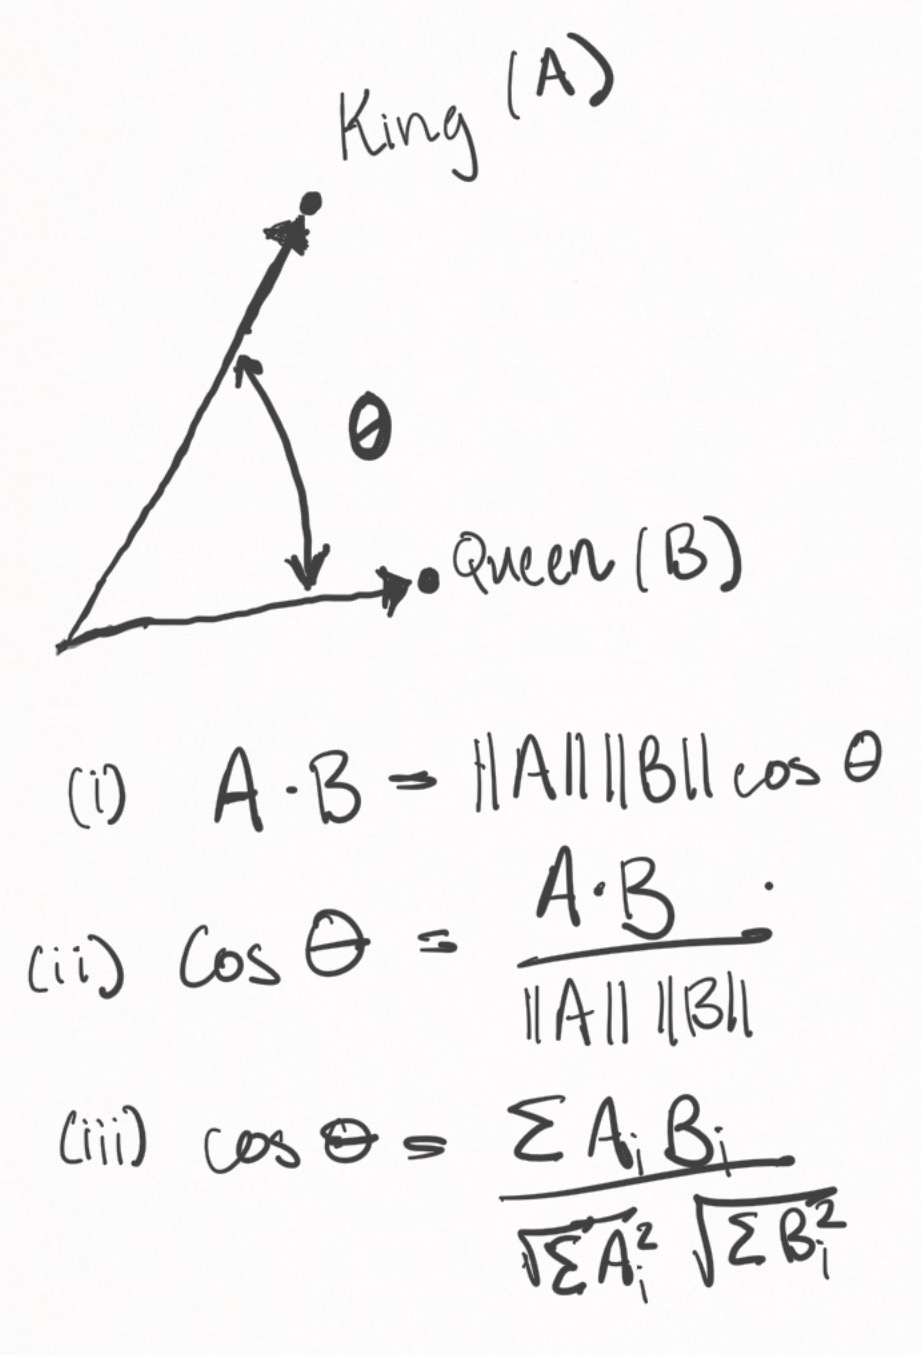 King (A)
θ
Queen (B)
(i) A · B = ||A|| ||B|| cos θ
(ii) Cos θ = A·B / ||A|| ||B||
(iii) cos θ = Σ AᵢBᵢ / √ΣAᵢ² √ΣBᵢ²